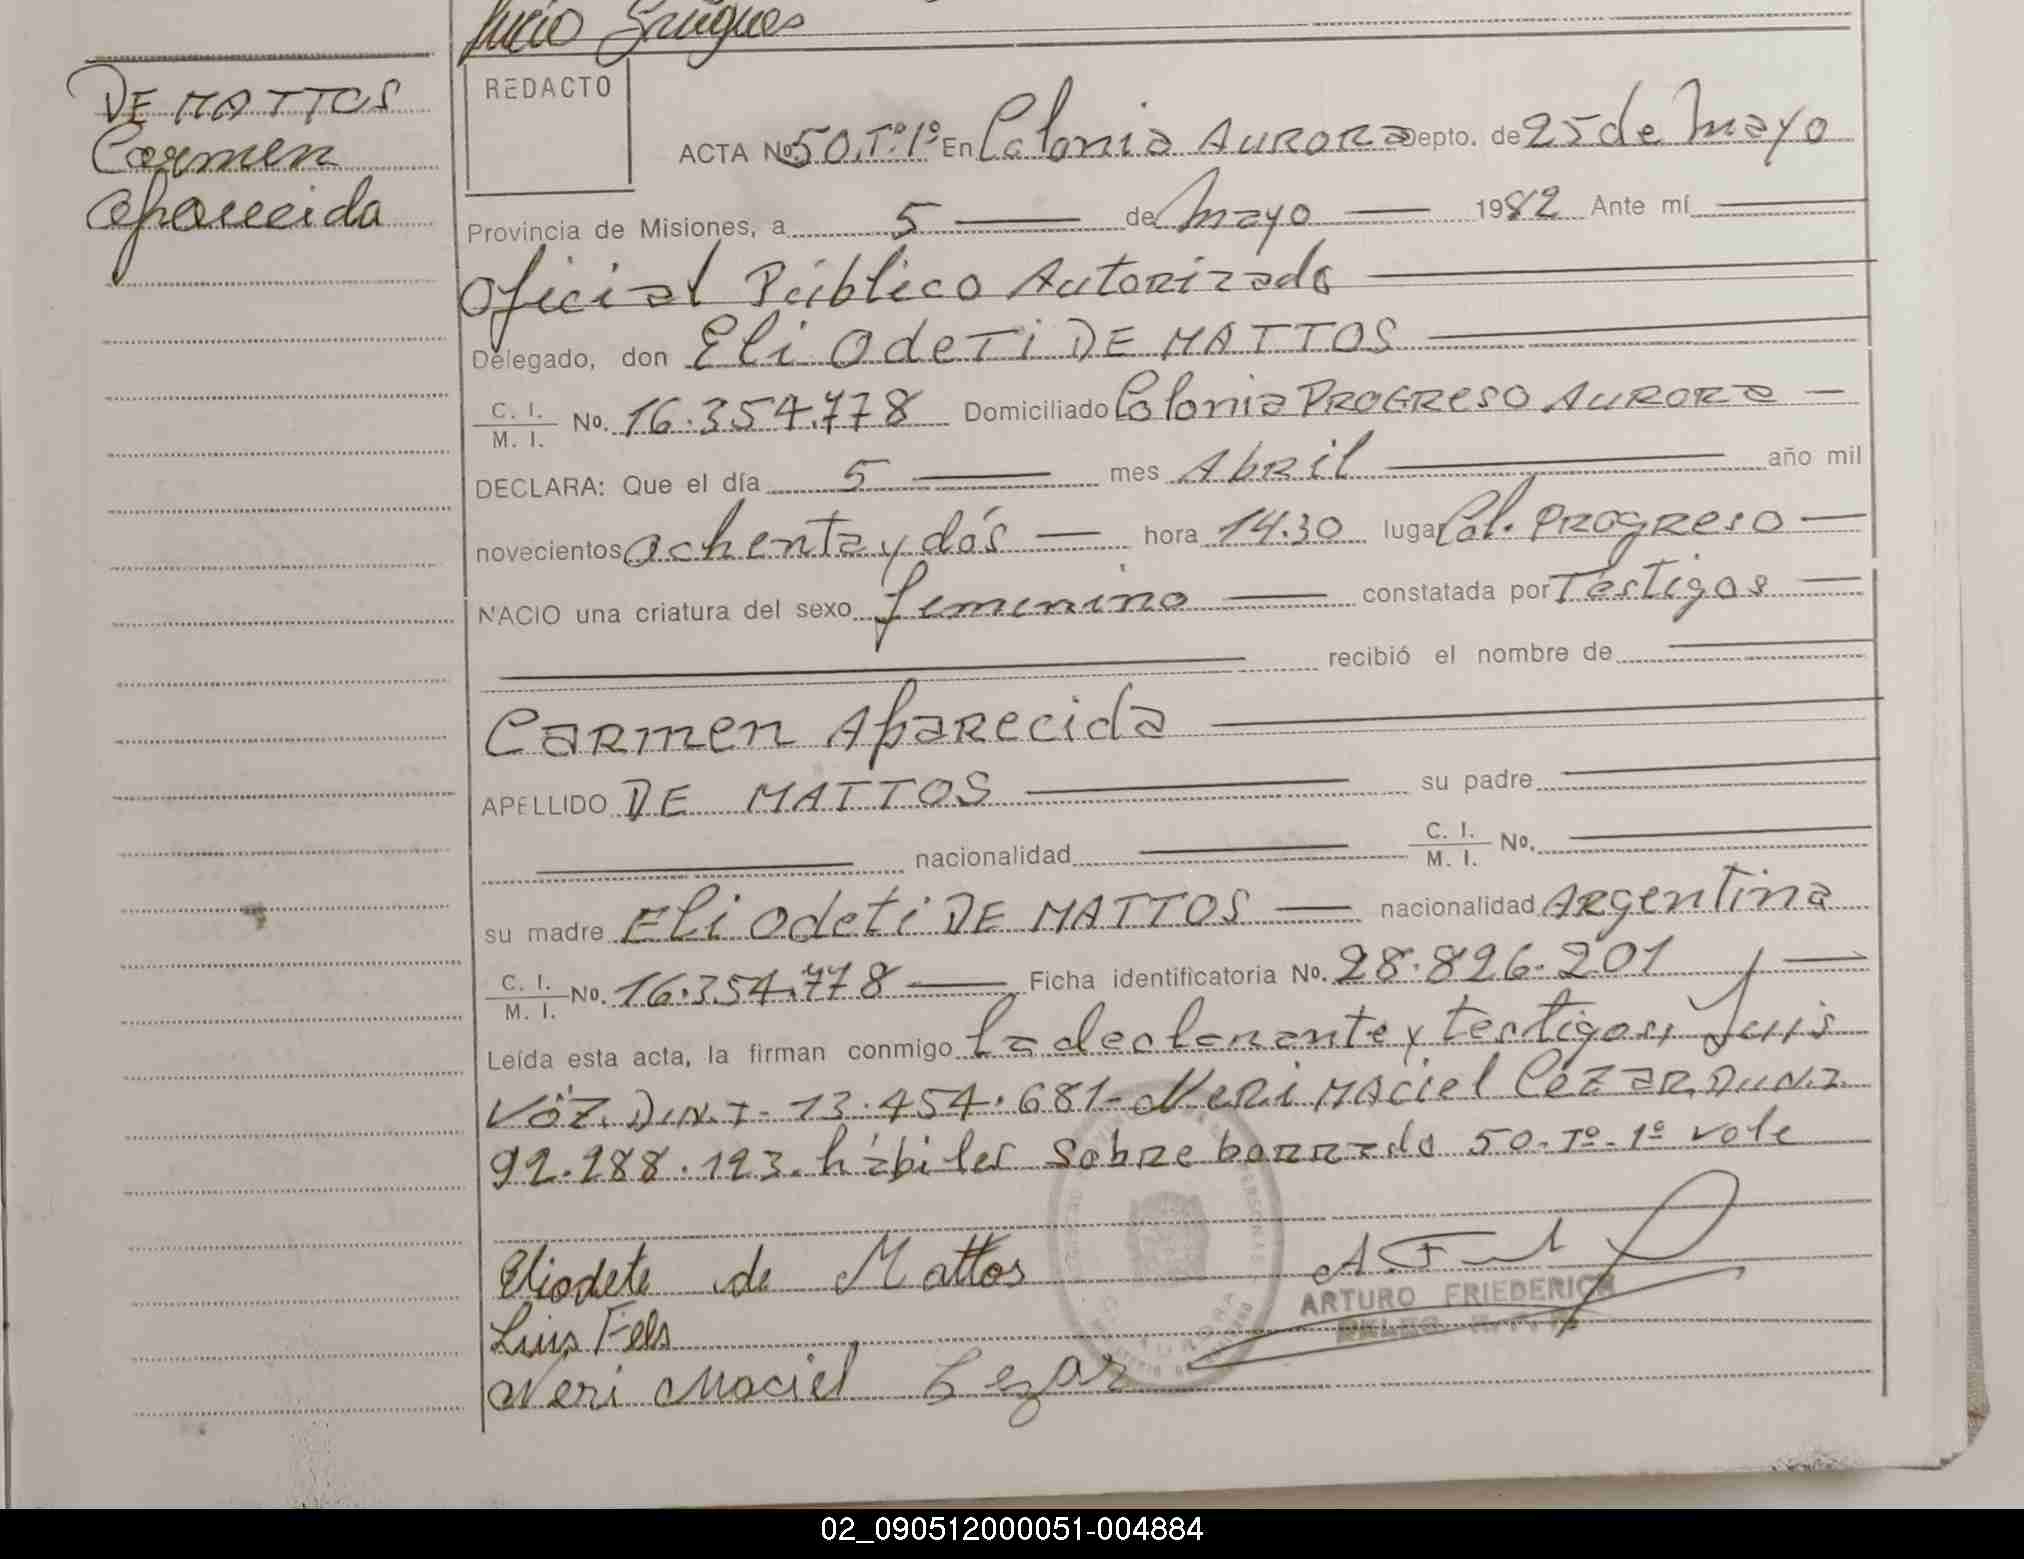 DE MATTOS
Carmen
Aparecida
REDACTO
ACTA No. 50.Tº.1º En Colonia AURORA Depto. de 25 de Mayo
Provincia de Misiones, a 5 de Mayo 1982 Ante mí
Oficial Público Autorizado
Delegado, don Eli Odeti DE MATTOS
C. I. / M. I. No. 16.354.778 Domiciliado Colonia PROGRESO AURORA
DECLARA: Que el día 5 mes Abril año mil
novecientos ochenta y dós hora 14.30 lugar Col. PROGRESO
NACIO una criatura del sexo femenino constatada por Testigos
recibió el nombre de
Carmen Aparecida
APELLIDO DE MATTOS su padre
nacionalidad C. I. / M. I. No.
su madre Eli Odeti DE MATTOS nacionalidad Argentina
C. I. / M. I. No. 16.354.778 Ficha identificatoria No. 28.826.201
Leída esta acta, la firman conmigo la declarante y testigos, Luis
VÖZ. D.N.I. 13.454.681- Neri MACiel CÉZAR D.N.I.
92.288.123. hábiles sobre borrado 50-Tº-1º vale
Eliodete de Mattos
Luis Fels
Neri Maciel Cezar
ARTURO FRIEDERICH
02_090512000051-004884